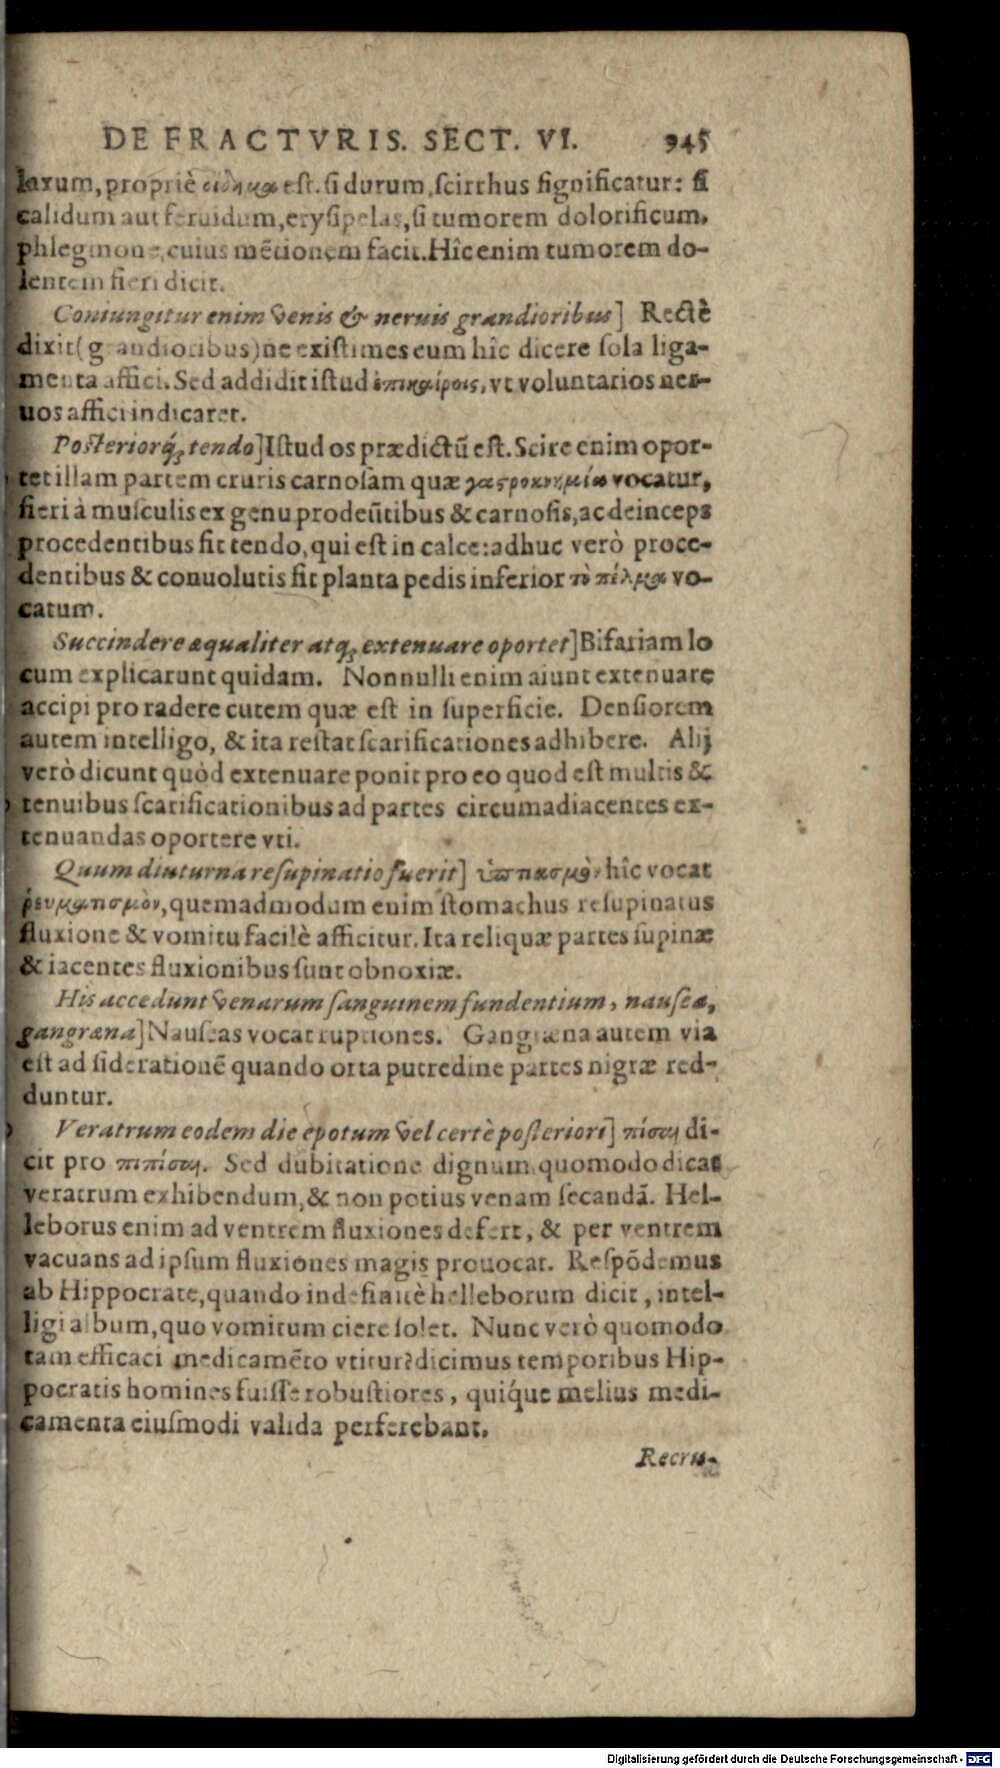 DE FRACTVRIS. SECT. VI. 945
laxum, propriè οἴδημα est. si durum, scirrhus significatur: si
calidum aut feruidum, erysipelas, si tumorem dolorificum,
phlegmone, cuius mētionem facit. Hîc enim tumorem do-
lentem fieri dicit.
Coniungitur enim venis & neruis grandioribus] Rectè
dixit (grandioribus) ne existimes eum hîc dicere sola liga-
menta affici. Sed addidit istud ἐπικαίροις, vt voluntarios ner-
uos affici indicaret.
Posteriorq́; tendo] Istud os prædictū est. Scire enim opor-
tet illam partem cruris carnosam quæ γαστροκνημία vocatur,
fieri à musculis ex genu prodeūtibus & carnosis, ac deinceps
procedentibus fit tendo, qui est in calce: adhuc verò proce-
dentibus & conuolutis fit planta pedis inferior τὸ πέλμα vo-
catum.
Succindere æqualiter atq; extenuare oportet] Bifariam lo
cum explicarunt quidam. Nonnulli enim aiunt extenuare
accipi pro radere cutem quæ est in superficie. Densiorem
autem intelligo, & ita restat scarificationes adhibere. Alij
verò dicunt quòd extenuare ponit pro eo quod est multis &
tenuibus scarificationibus ad partes circumadiacentes ex-
tenuandas oportere vti.
Quum diuturna resupinatio fuerit] hîc vocat
ῥευματισμὸν, quemadmodum enim stomachus resupinatus
fluxione & vomitu facilè afficitur. Ita reliquæ partes supinæ
& iacentes fluxionibus sunt obnoxiæ.
His accedunt venarum sanguinem fundentium, nauseæ,
gangræna] Nauseas vocat ruptiones. Gangræna autem via
est ad sideratione̅ quando orta putredine partes nigræ red-
duntur.
Veratrum eodem die epotum vel certè posteriori] πίσαι di-
cit pro πιπίσαι. Sed dubitatione dignum quomodo dicat
veratrum exhibendum, & non potius venam secandā. Hel-
leborus enim ad ventrem fluxiones defert, & per ventrem
vacuans ad ipsum fluxiones magis prouocat. Respōdemus
ab Hippocrate, quando indefinitè helleborum dicit, intel-
ligi album, quo vomitum ciere solet. Nunc verò quomodo
tam efficaci medicamēto vtitur? dicimus temporibus Hip-
pocratis homines fuisse robustiores, quiq́ue melius medi-
camenta eiusmodi valida perferebant.
Recru-
Digitalisierung gefördert durch die Deutsche Forschungsgemeinschaft - DFG